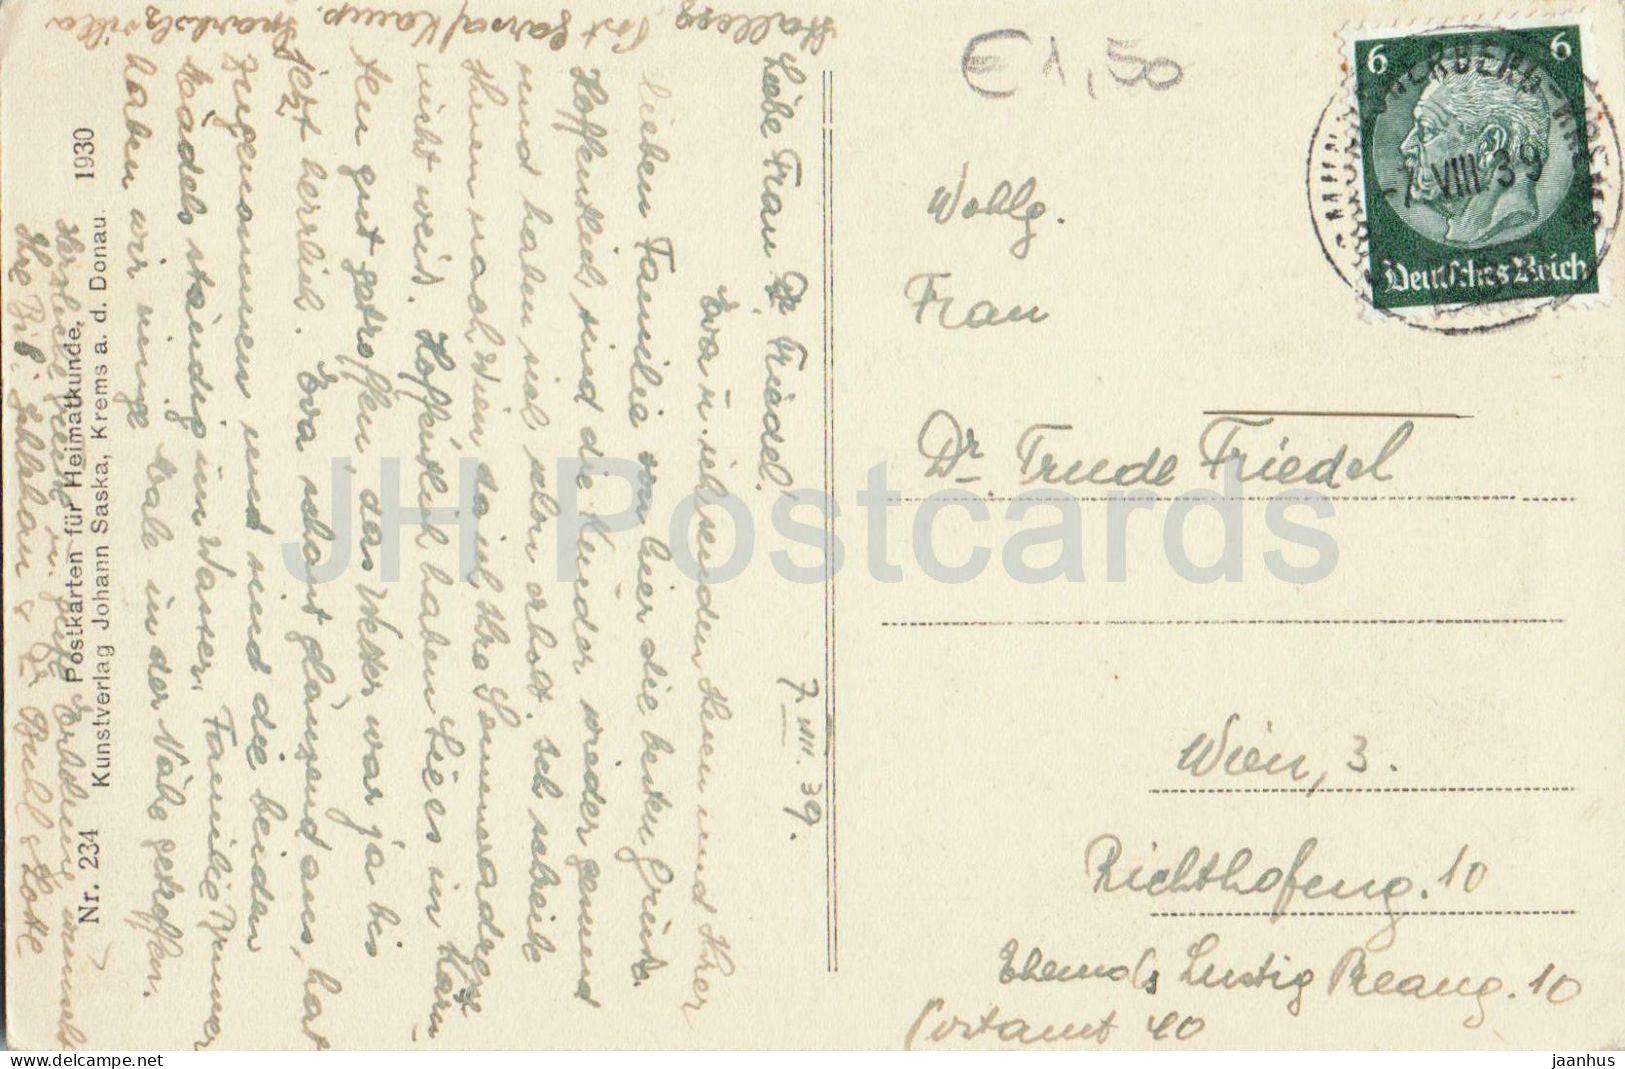 Stallegg
Post Gars a/Kamp.
Liebe Frau Dr Friedel!
7. VIII. 39.
Eva u. ich senden Ihnen und Ihrer
lieben Familie von hier die besten Grüsse.
Hoffentlich sind die Kinder wieder gesund
und haben sich schon erholt. Ich schreibe
Ihnen nach Wien da ich Ihre Sommeradresse
nicht weiß. Hoffentlich haben Sie es in
gut getroffen, das Wetter war ja bis
jetzt herrlich. Eva schaut glänzend aus, hat
zugenommen und sind die beiden
Mädels ständig im Wasser. Familie Brunner
haben wir einige Male in der Nähe getroffen.
Herzliche Grüße u. gute Erholung wünscht
Ihre
Nr. 234 Postkarten für Heimatkunde, 1930
Kunstverlag Johann Saska, Krems a. d. Donau.
€ 1,50
6 6
-7. VIII. 39
Deutsches Reich
Wohlg.
Frau
Dr. Trude Friedel
Wien, 3.
Richthofeng. 10
Ehemals Lustig Preang. 10
Postamt 40
JH Postcards
www.delcampe.net
jaanhus